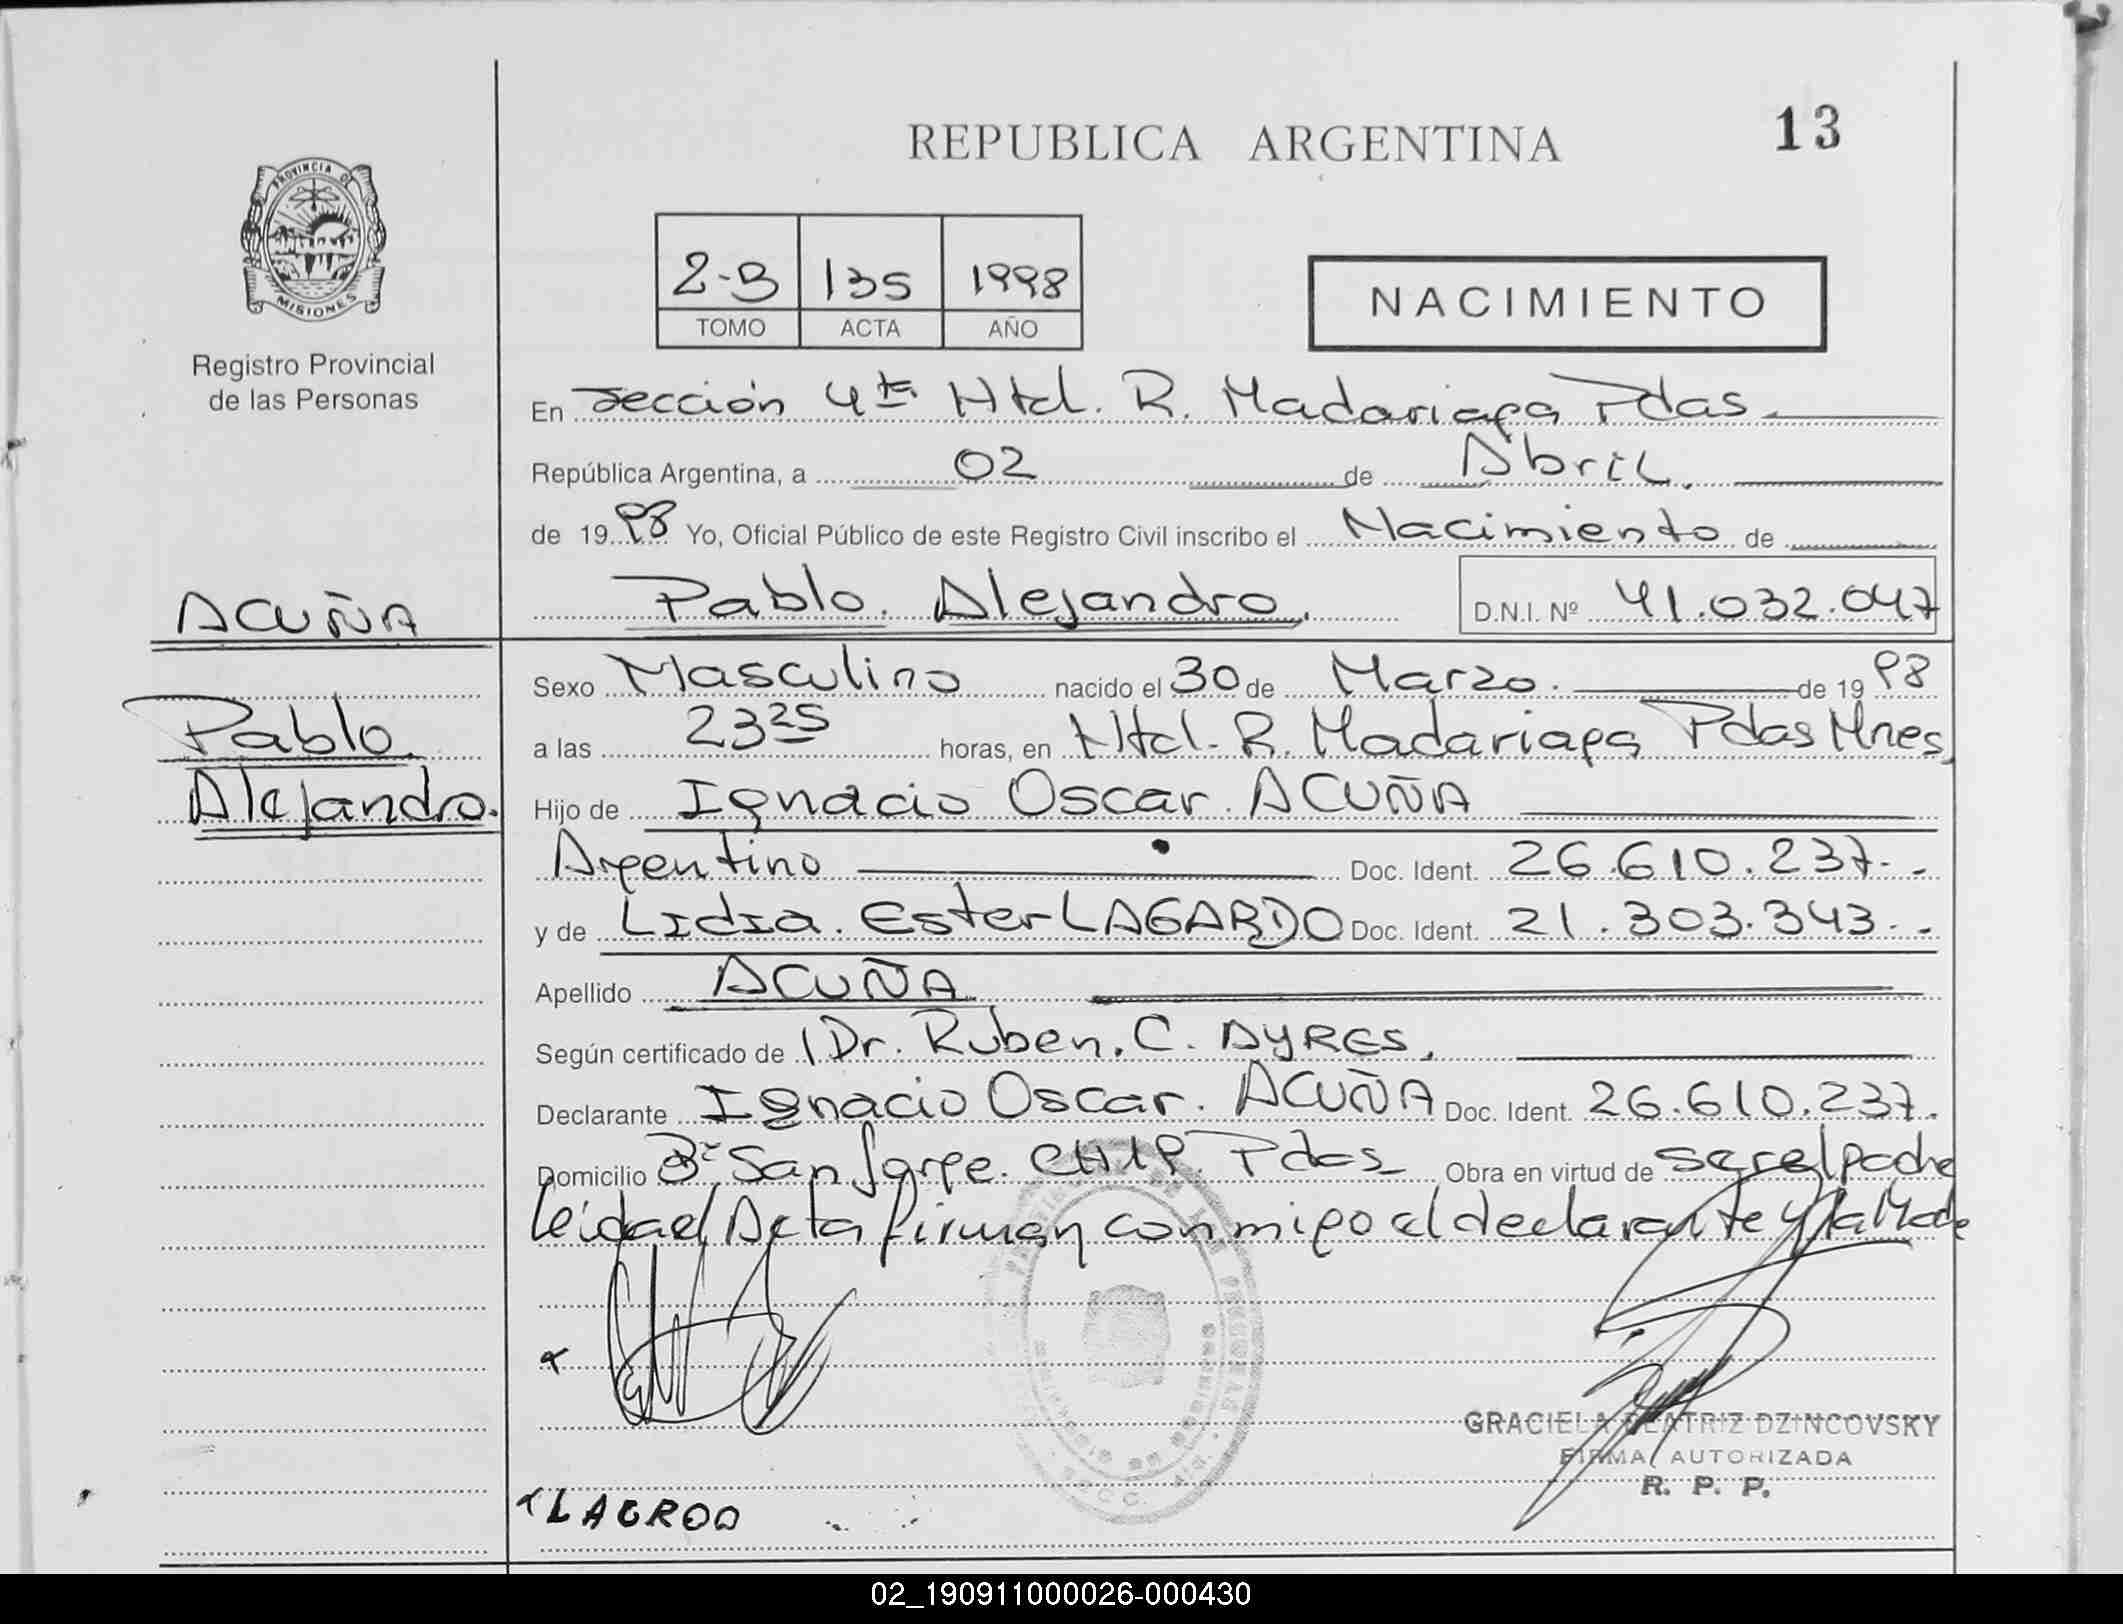 REPUBLICA ARGENTINA
13
PROVINCIA DE
MISIONES
Registro Provincial
de las Personas
2-B 135 1998
TOMO ACTA AÑO
NACIMIENTO
En Sección 4ta Htal. R. Madariaga Pdas.
República Argentina, a 02 de Abril.
de 1998 Yo, Oficial Público de este Registro Civil inscribo el Nacimiento de
Pablo. Alejandro. D.N.I. Nº 41.032.047
ACUÑA
Pablo.
Alejandro.
Sexo Masculino nacido el 30 de Marzo. de 1998
a las 23 25 horas, en Htal. R. Madariaga Pdas Mnes,
Hijo de Ignacio Oscar. ACUÑA
Argentino Doc. Ident. 26.610.237.-
y de Lidia. Ester LAGARDO Doc. Ident. 21.303.343.-
Apellido ACUÑA
Según certificado de Dr. Ruben. C. AYRES,
Declarante Ignacio Oscar. ACUÑA Doc. Ident. 26.610.237.
Domicilio Bº San Jorge. CH 1P. Pdas Obra en virtud de ser el padre
leída el Acta firman conmigo el declarante y la Madre
GRACIELA BEATRIZ DZINCOVSKY
FIRMA AUTORIZADA
R. P. P.
LAGRDO
02_190911000026-000430